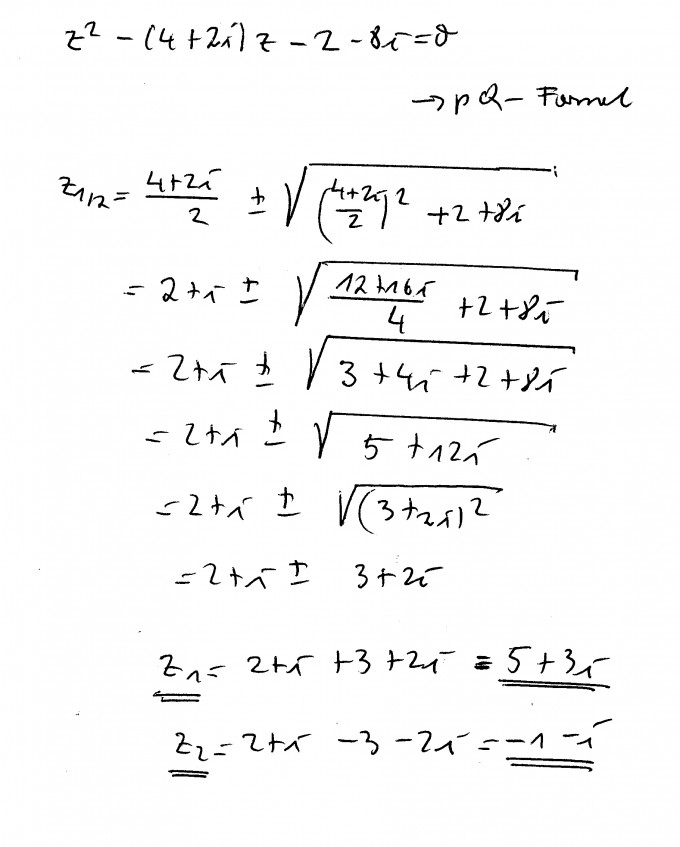 z² - (4+2i) z - 2 - 8i = 0
→ pQ - Formel
z₁/₂ = (4+2i)/2 ± √(((4+2i)/2)² + 2 + 8i)
= 2+i ± √((12+16i)/4 + 2 + 8i)
= 2+i ± √(3 + 4i + 2 + 8i)
= 2+i ± √(5 + 12i)
= 2+i ± √((3+2i)²)
= 2+i ± 3+2i
z₁ = 2+i + 3 + 2i = 5 + 3i
z₂ = 2+i - 3 - 2i = -1 - i